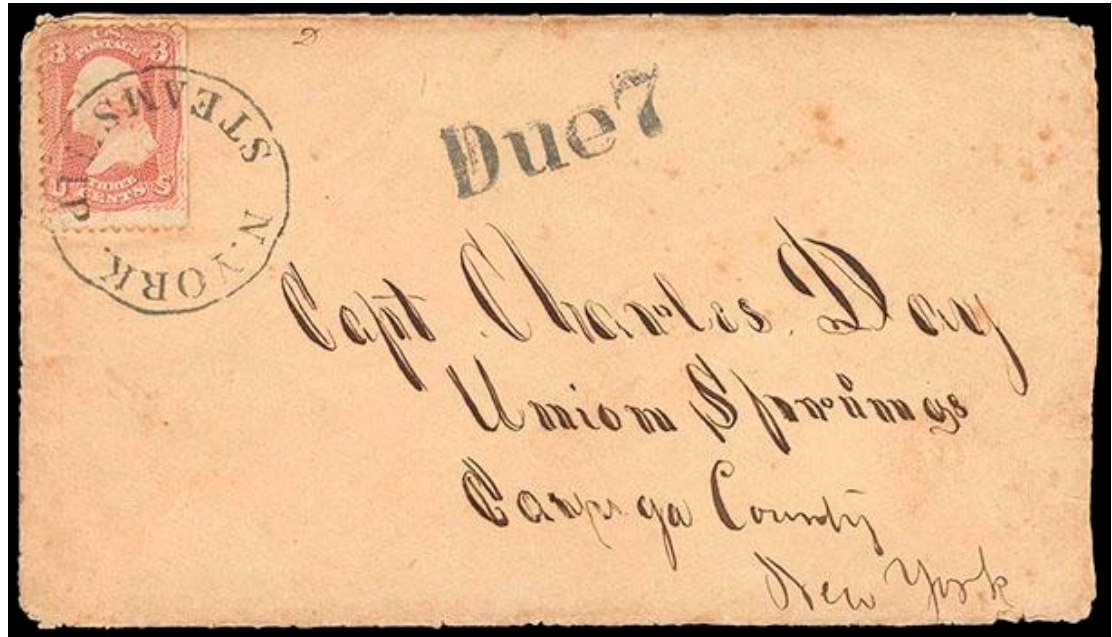 U.S.
POSTAGE
3 3
CENTS
D
STEAMSHIP
N. YORK.
Due 7
Capt. Charles. Day
Union Springs
Cayuga County
New York